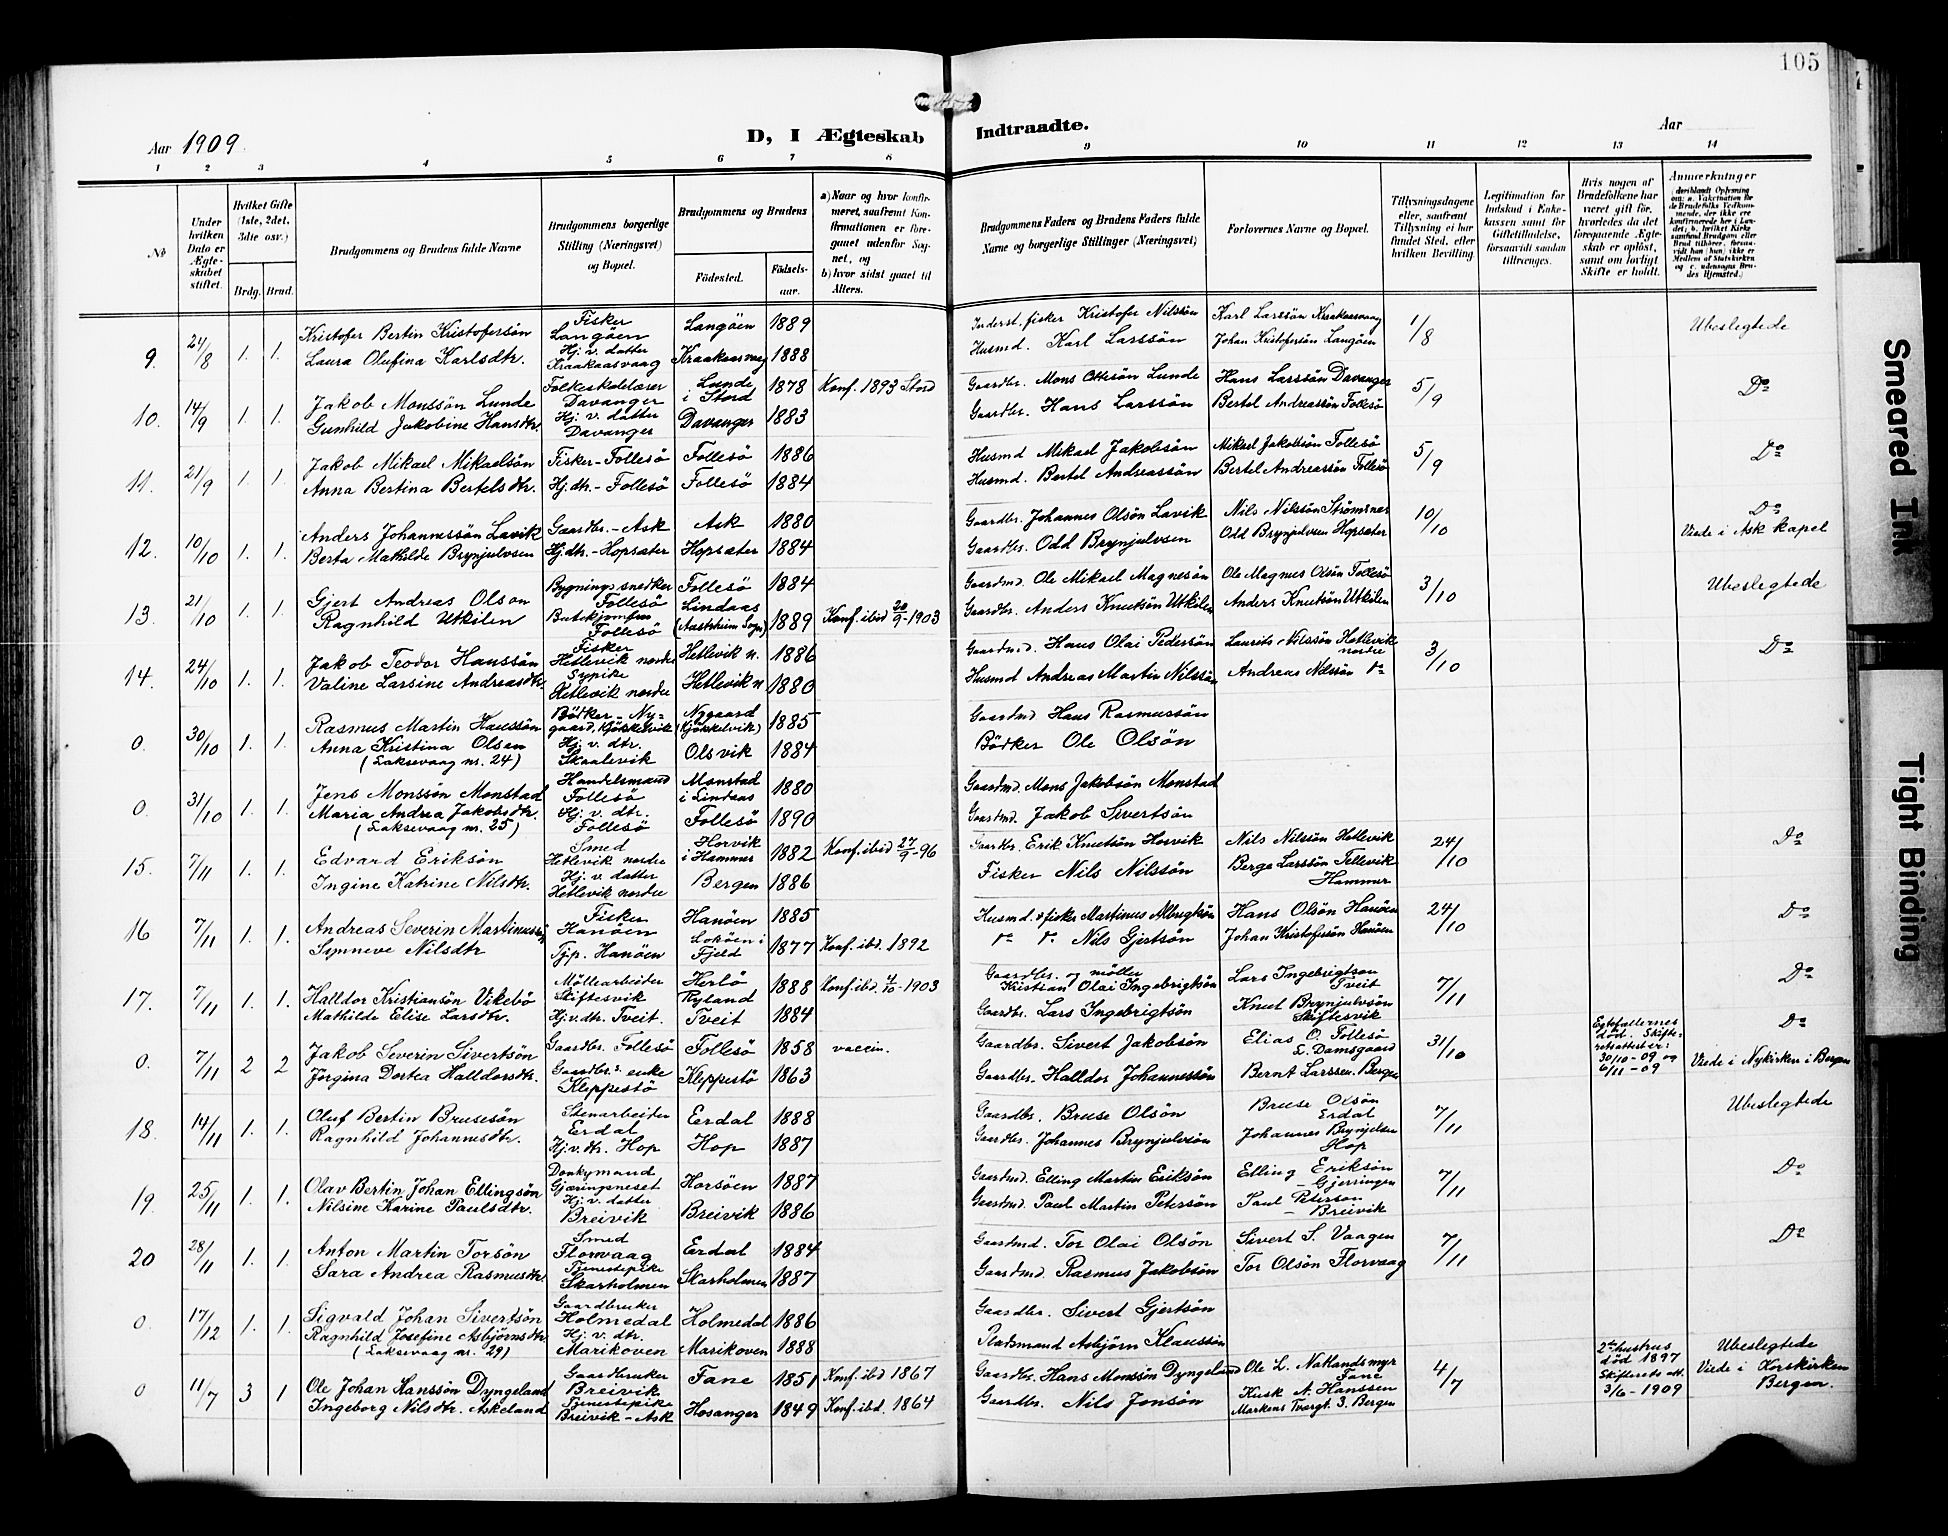 105
Aar 1909.
D, I Ægteskab Indtraadte.
Aar
1 2 3 4 5 6 7 8 9 10 11 12 13 14
No
Under hvilken Dato er Ægteskabet stiftet.
Hvilket Gifte (1ste, 2det, 3die osv.)
Brdg. Brud.
Brudgommens og Brudens fulde Navne
Brudgommens borgerlige Stilling (Næringsvei) og Bopæl.
Brudgommens og Brudens
Födested. Födselsaar.
a) Naar og hvor konfirmeret, saafremt Konfirmationen er foregaaet udenfor Sognet, og
b) hvor sidst gaaet til Alters.
Brudgommens Faders og Brudens Faders fulde Navne og borgerlige Stillinger (Næringsvei)
Forlovernes Navne og Bopæl.
Tillysningsdagene eller, saafremt Tillysning ei har fundet Sted, efter hvilken Bevilling.
Legitimation for Indskud i Enkekassen samt for Giftetilladelse, forsaavidt saadan tiltrænges.
Hvis nogen af Brudefolkene har været gift før, hvorledes da det foregaaende Ægteskab er oplöst, samt om lovligt Skifte er holdt.
Anmærkninger
(deriblandt Oplysning om: a. Vaksination for de Brudefolks Vedkommende, der ikke ere konfirmerede her i Landet; b. hvilket Kirkesamfund Brudgom eller Brud tilhörer, forsaavidt han (hun) ikke er Medlem af Statskirken og c. udensogns Brudes Hjemsted.)
9. 24/8 1. 1. Kristofer Bertin Kristofersön Fisker Langöen Langöen 1889 Inderst, fisker Kristofer Nilssön Karl Larssön Kraakaasvaag 1/8 Ubeslegtede
Laura Olufina Karlsdtr. Hj. v. datter Kraakaasvaag Kraakaasvaag 1888 Husmd. Karl Larssön Johan Kristofersön Langöen
10. 14/9 1. 1. Jakob Monssön Lunde Folkeskolelærer Davanger Lunde i Stord 1878 Konf. 1893 Stord Gaardbr. Mons Ottesön Lunde Hans Larssön Davanger 5/9 Do
Gunhild Jakobine Hansdtr. Hj. v. datter Davanger Davanger 1883 Gaardbr. Hans Larssön Bertel Andreassön Follesö
11. 21/9 1. 1. Jakob Mikael Mikaelsön Fisker - Follesö Follesö 1886 Husmd Mikael Jakobsön Mikael Jakobsön Follesö 5/9 Do
Anna Bertina Bertelsdtr. Hj. dtr. - Follesö Follesö 1884 Husmd. Bertel Andreassön Bertel Andreassön Follesö
12. 10/10 1. 1. Anders Johannessön Lavik Gaardbr. - Ask Ask 1880 Gaardbr. Johannes Olsön Lavik Nils Nilssön Strömsnes 10/10 Do
Berta Mathilde Brynjulvsen Hj. dtr. - Hopsæter Hopsæter 1884 Gaardbr. Odd Brynjulvsen Odd Brynjulvsen Hopsæter Viede i Ask kapel
13. 21/10 1. 1. Gjert Andreas Olson Bygningssnedker Follesö Follesö 1884 Gaardmd. Ole Mikael Magnesön Ole Magnus Olsön Follesö 3/10 Ubeslegtede
Ragnhild Utkilen Butikjomfru Follesö Lindaas (Austrheim Sogn) 1889 Konf. ibid 20/9 - 1903 Gaardbr. Anders Knutsön Utkilen Anders Knutsön Utkilen
14. 24/10 1. 1. Jakob Teodor Hanssön Fisker Hetlevik nordre Hetlevik n. 1886 Gaardmd. Hans Olai Pedersön Laurits Nilssön Hetlevik nordre 3/10 Do
Valine Larsine Andreasdtr. Sypike Hetlevik nordre Hetlevik n 1880 Husmd Andreas Martin Nilssön Andreas Nilssön do
0. 30/10 1. 1. Rasmus Martin Hanssön Bödker - Nygaard, Kjökkelvik Nygaard (Kjökkelvik) 1885 Gaardmd Hans Rasmussön
Anna Kristina Olsen Hj. v. dtr. Skaalevik Olsvik 1884 Bödker Ole Olsön
(Laksevaag nr. 24)
0. 31/10 1. 1. Jens Monssön Monstad Handelsmand Follesö Monstad i Lindaas 1880 Gaardmd. Mons Jakobsön Monstad
Maria Andrea Jakobsdtr. Hj. v. dtr. Follesö Follesö 1890 Gaardmd. Jakob Sivertsön
(Laksevaag nr. 25)
15. 7/11 1. 1. Edvard Eriksön Smed Hetlevik nordre Horvik i Hammer 1882 Konf. ibid 27/9 - 96 Gaardbr. Erik Knutsön Horvik Nils Nilssön Hetlevik 24/10 Do
Ingine Katrine Nilsdtr. Hj. v. datter Hetlevik nordre Bergen 1886 Fisker Nils Nilssön Berge Larssön Tellevik Hammer
16 7/11 1. 1. Andreas Severin Martinussön Fisker Hanöen Hanöen 1885 Husmd. & fisker Martinus Albrigtsön Hans Olsön Hanöen 24/10 Do
Synneve Nilsdtr Tjp. Hanöen Loköen i Fjeld 1877 Konf. ibd. 1892 do do Nils Gjertsön Johan Kristofersön Hanöen
17. 7/11 1. 1. Halldor Kristiansön Vikebö Möllearbeider Skiftesvik Herlö Nyland 1888 Konf. ibd. 4/10 - 1903 Gaardbr. og möller Kristian Olai Ingebrigtsön Lars Ingebrigtson Tveit 7/11 Do
Mathilde Elise Larsdtr. Hj. v. dtr. Tveit. Tveit 1884 Gaardbr. Lars Ingebrigtsön Knut Brynjulvsön Skiftesvik
0. 7/11 2 2 Jakob Severin Sivertsön Gaardbr. Follesö Follesö 1858 vaccin. Gaardbr. Sivert Jakobsön Elias O. Follesö L. Damsgaard 31/10 Egtefællernes död. Skifteretsattester: 30/10 - 09 og 6/11 - 09 Do
Jörgina Dortea Halldorsdtr. Gaardbr.s enke Kleppestö Kleppestö 1863 Gaardbr. Halldor Johannessön Bernt Larssen, Bergen Viede i Nykirken i Bergen
18. 14/11 1. 1. Oluf Bertin Brusesön Stenarbeider Erdal Erdal 1888 Gaardbr. Bruse Olsön Bruse Olsön Erdal 7/11 Ubeslegtede
Ragnhild Johannesdtr. Hj. v. dtr. Hop Hop 1887 Gaardbr. Johannes Brynjulvsön Johannes Brynjelsen Hop
19. 25/11 1. 1. Olav Bertin Johan Ellingsön Donkymand Gjæringsneset Horsöen 1887 Gaardmd. Elling Martin Eriksön Elling Eriksön - Gjerringen 7/11 Do
Nilsine Karine Paulsdtr. Hj. v. datter Breivik Breivik 1886 Gaardmd. Paul Martin Petersön Paul Peterson - Breivik
20 28/11 1. 1. Anton Martin Torsön Smed Florvaag Erdal 1884 Gaardmd. Tor Olai Olsön Sivert S. Vaagen 7/11 Do
Sara Andrea Rasmusdtr. Tjenestepike Skarholmen Skarholmen 1887 Gaardmd. Rasmus Jakobsön Tor Olsön Florvaag
0. 17/12 1. 1. Sigvald Johan Sivertsön Gaardbruker Holmedal Holmedal 1886 Gaardbr. Sivert Gjertsön
Ragnhild Josefine Asbjörnsdtr Hj. v. dtr. Marikoven Marikoven 1888 Pladsmand Asbjörn Klaussön
(Laksevaag nr. 29)
0 11/7 3 1 Ole Johan Hanssön Dyngeland Gaardbruker Breivik Fane 1851 Konf. ibd 1867 Gaardbr. Hans Monssön Dyngeland Ole L. Natlandsmyr Fane 4/7 2den hustrus död 1897 Skifterets att. 3/6 - 1909 Ubeslegtede Viede i Korskirken Bergen.
Ingeborg Nilsdtr. Askeland Tjenestepike Breivik - Ask Hosanger 1849 Konf. ibd. 1864 Gaardbr. Nils Jonsön Kirsk A. Hanssen Markens Tvergt. 3. Bergen
Smeared Ink
Tight Binding